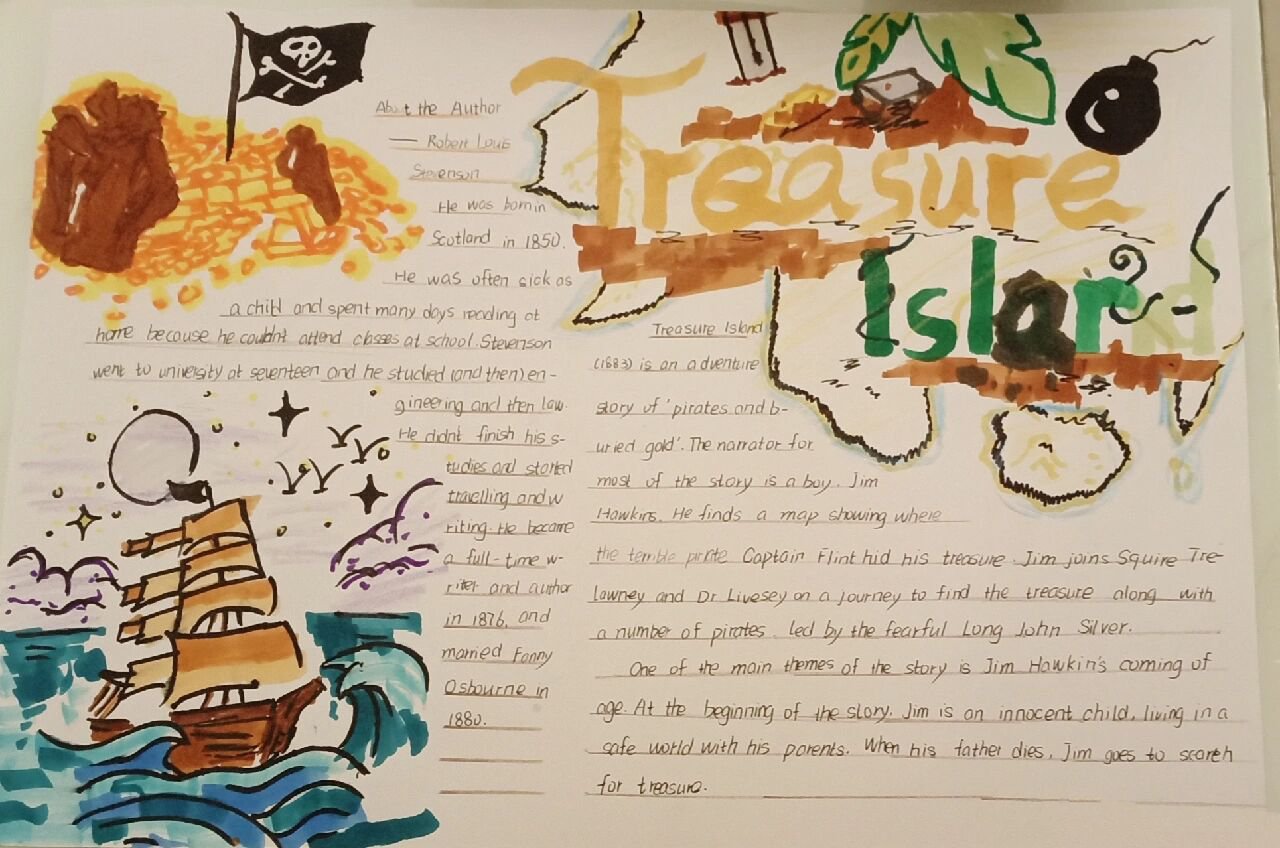 Treasure
Island
About the Author
— Robert Louis
Stevenson
He was born in
Scotland in 1850.
He was often sick as
a child and spent many days reading at
home because he couldn't attend classes at school. Stevenson
went to university at seventeen and he studied (and then) en-
gineering and then law.
He didn't finish his s-
tudies and started
travelling and w
riting. He became
a full-time w-
riter and author
in 1876, and
married Fanny
Osbourne in
1880.
Treasure Island
(1883) is an adventure
story of 'pirates and b-
uried gold'. The narrator for
most of the story is a boy. Jim
Hawkins. He finds a map showing where
the terrible pirate Captain Flint hid his treasure. Jim joins Squire Tre-
lawney and Dr Livesey on a journey to find the treasure along with
a number of pirates. led by the fearful Long John Silver.
One of the main themes of the story is Jim Hawkin's coming of
age. At the beginning of the story, Jim is an innocent child, living in a
safe world with his parents. When his father dies, Jim goes to search
for treasure.